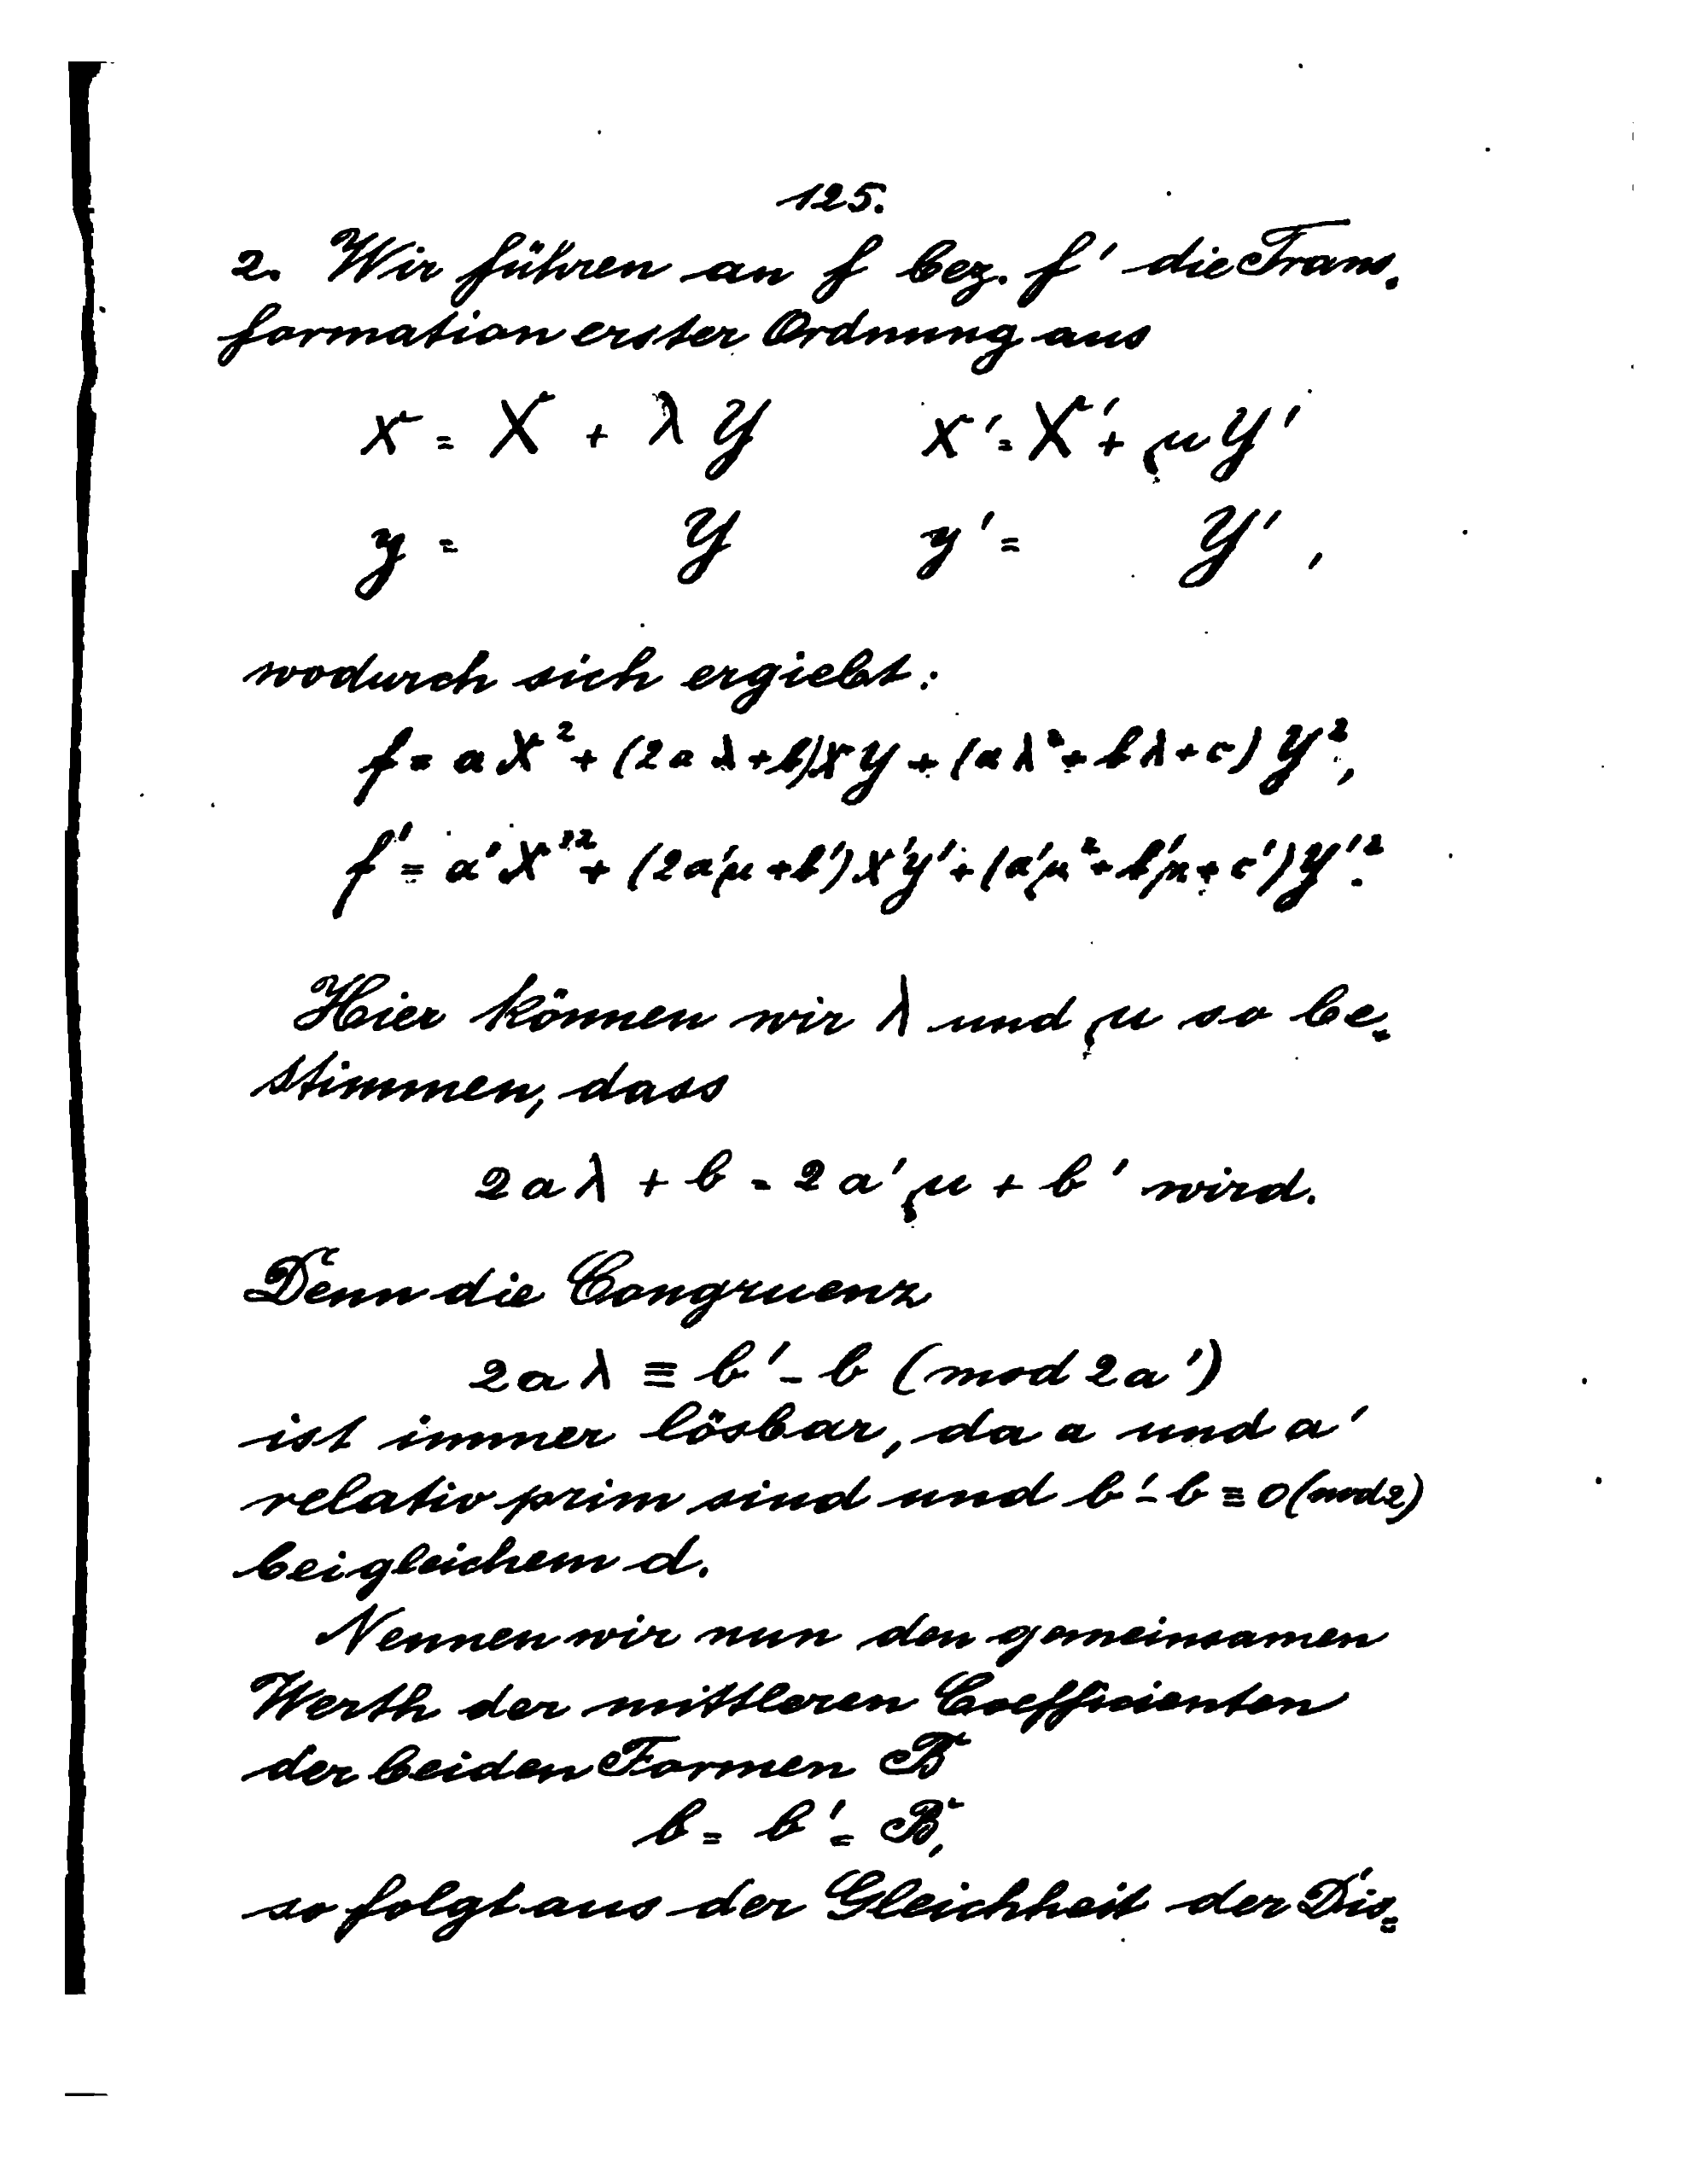 125.
2. Wir führen an f bez. f' die Trans-
formation erster Ordnung aus
x = X + λ Y x' = X' + μ Y'
y = Y y' = Y' ,
wodurch sich ergiebt:
f = a X² + (2 a λ + b) X Y + (a λ² + b λ + c) Y²,
f' = a' X'² + (2 a' μ + b') X' Y' + (a' μ² + b' μ + c') Y'².
Hier können wir λ und μ so be-
stimmen, dass
2 a λ + b = 2 a' μ + b' wird.
Denn die Congruenz
2 a λ ≡ b' - b (mod 2 a')
ist immer lösbar, da a und a'
relativ prim sind und b' - b ≡ 0 (mod 2)
bei gleichem d.
Nennen wir nun den gemeinsamen
Werth der mittleren Coefficienten
der beiden Formen B
b = b' = B,
so folgt aus der Gleichheit der Dis=